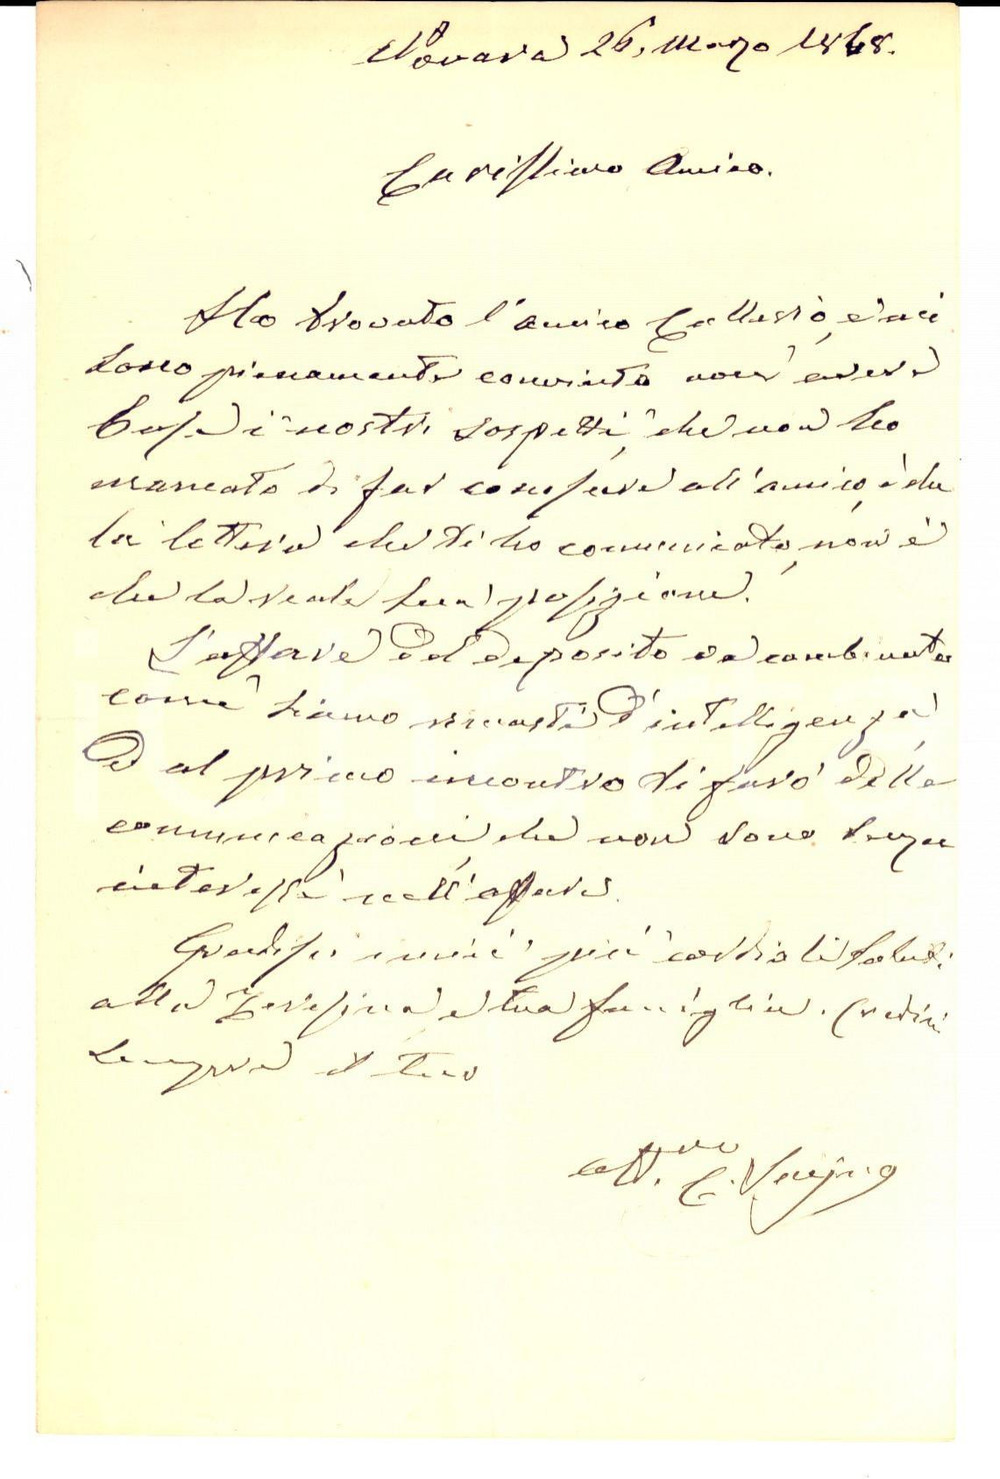 Novara 26, Marzo 1868.
Carissimo Amico.
Ho trovato l'amico e mi
sono pienamente convinto non avere
base i nostri sospetti, che non ho
mancato di far all'amico, e che
la lettera che ti ho comunicata, non è
che la reale sua posizione.
L'affare del deposito va combinato
come siamo rimasti d'intelligenza
e al primo incontro ti farò delle
comunicazioni, che non sono senza
interesse nell'affare.
Gradisci i miei più cordiali saluti
alla Teresina e tua famiglia. Credimi
sempre il tuo
aff.mo C.